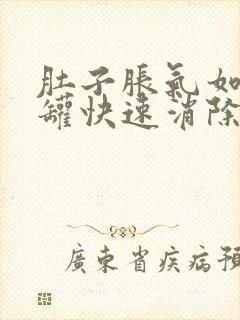 肚子脹氣如
罐快速消除
廣東省疾病預